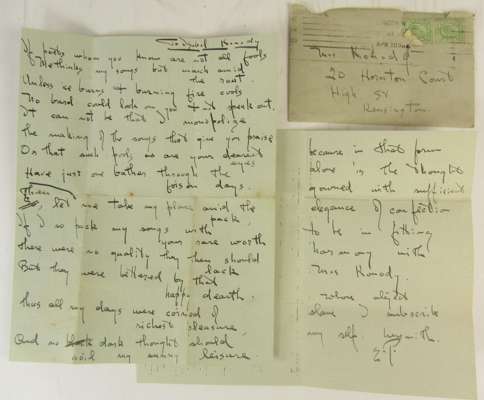 To Isabel Konody
If poets whom you know are not all fools
Methinks my songs but march amid
the rout.
Unless he burns & burning fire cools
No bard could look on you & not speak out.
It can not be that I monopolize
the making of the songs that give you praise
Or that such pools as are your dearest
eyes
Have just one bather through the
foison days.
Then, let me take my place amid the
pack,
If I so pack my songs with
your rare worth
there were no quality they then should
lack
But they were bettered by that
happy dearth.
thus all my days were coined of
richest pleasure,
And no dark thought should
void my sunny leisure.
Mrs Konody
20 Hornton Court
High St
Kensington.
because in that form
alone is the thought
gowned with sufficient
elegance of confection
to be in fitting
harmony with
Mrs Konody.
whose abject
slave I subscribe
my self. herewith.